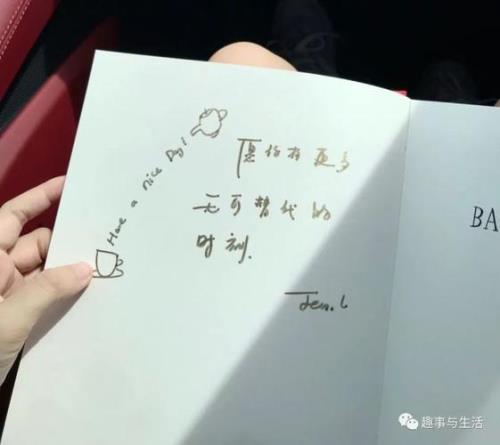 Have a nice Day!
愿你有更多
无可替代的
时刻.
Jen.L
BA
趣事与生活